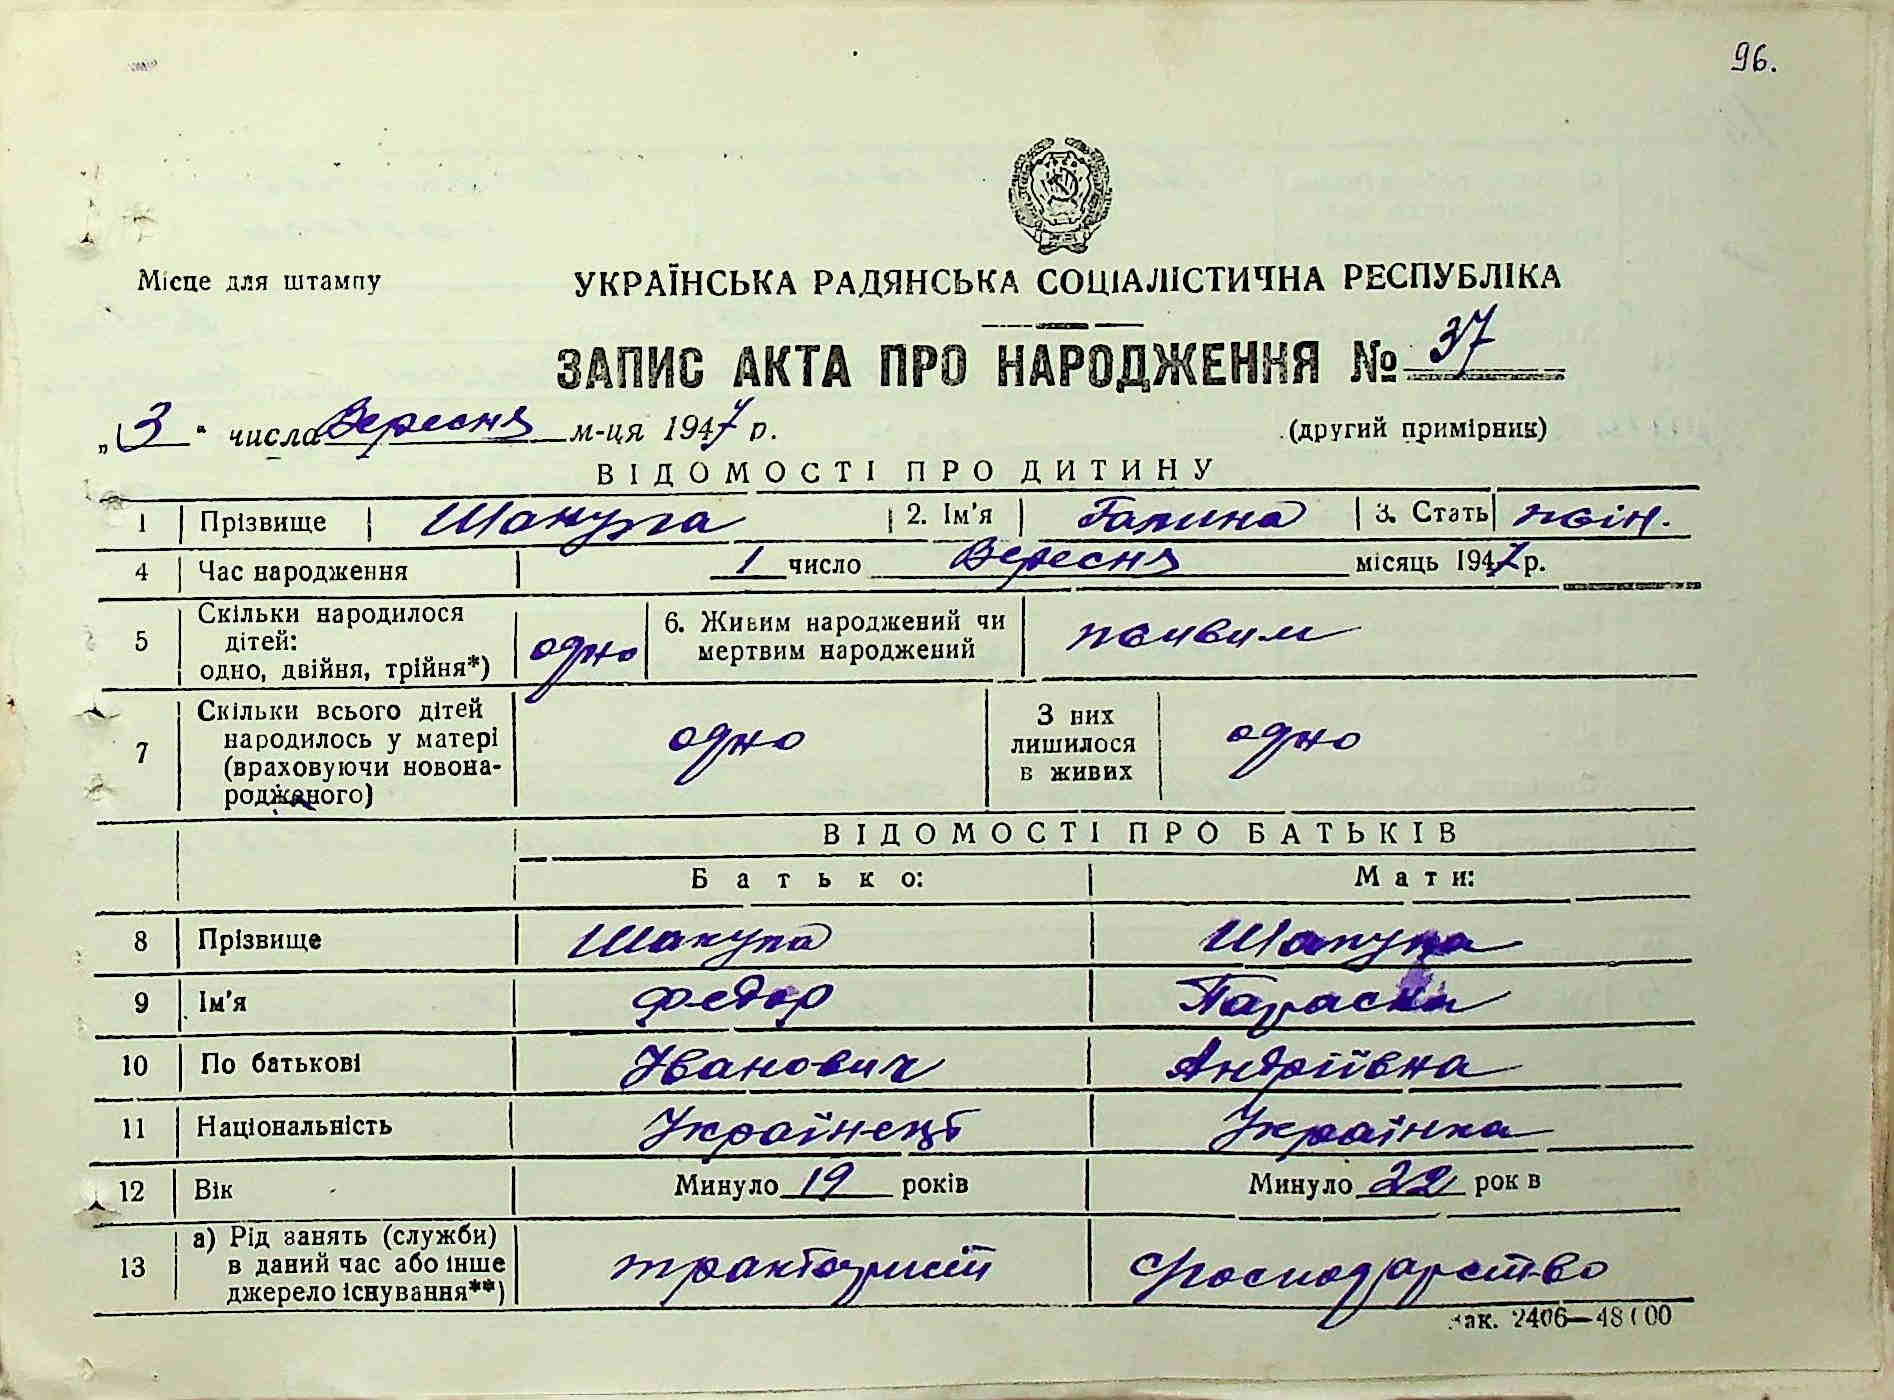 96.
Місце для штампу
УКРАЇНСЬКА РАДЯНСЬКА СОЦІАЛІСТИЧНА РЕСПУБЛІКА
ЗАПИС АКТА ПРО НАРОДЖЕННЯ № 37
„3“ числа Вересня м-ця 1947 р. (другий примірник)
ВІДОМОСТІ ПРО ДИТИНУ
1 Прізвище 2. Ім'я Галина 3. Стать жін.
4 Час народження 1 число Вересня місяць 1947 р.
5 Скільки народилося дітей: одно, двійня, трійня*) одно 6. Живим народжений чи мертвим народжений живим
7 Скільки всього дітей народилось у матері (враховуючи новонародженого) одно З них лишилося в живих одно
ВІДОМОСТІ ПРО БАТЬКІВ
Батько: Мати:
8 Прізвище
9 Ім'я Федор Параска
10 По батькові Іванович Андріївна
11 Національність Українець Українка
12 Вік Минуло 19 років Минуло 22 рок в
13 а) Рід занять (служби) в даний час або інше джерело існування**) тракторист
Зак. 2406—48